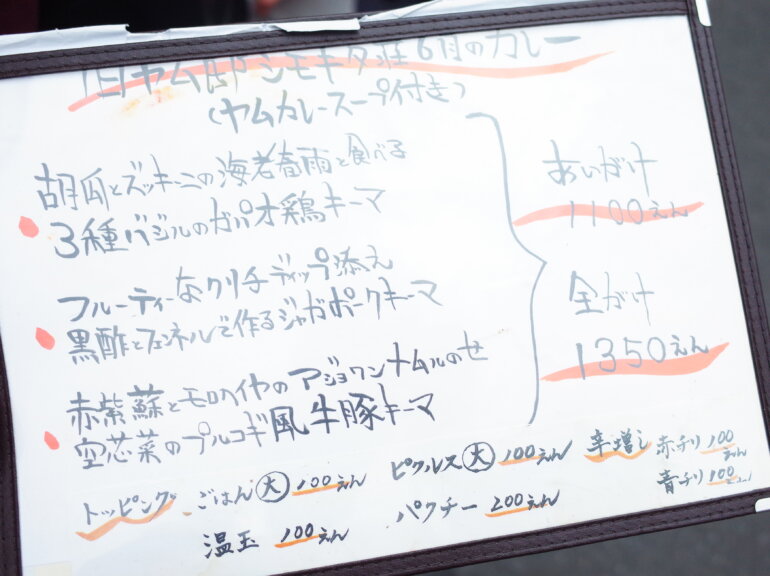 旧ヤム邸シモキタ荘6月のカレー
(ヤムカレースープ付き)
胡瓜とズッキーニの海老春雨と食べる
3種バジルのガパオ鶏キーマ
フルーティーなクリチディップ添え
黒酢とフェンネルで作るジャガポークキーマ
赤紫蘇とモロヘイヤのアジョワンナムルのせ
空芯菜のプルコギ風牛豚キーマ
あいがけ
1100えん
全がけ
1350えん
トッピング ごはん大 100えん ピクルス大 100えん 辛増し 赤チリ100えん
青チリ100えん
温玉 100えん パクチー 200えん